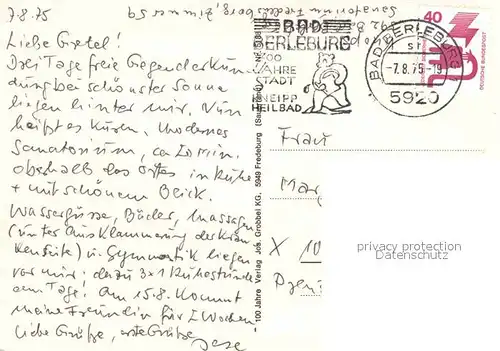 7.8.75
Liebe Gretel!
Drei Tage freie Gegenderkun
dung bei schönster Sonne
liegen hinter mir. Nun
heißt es Kuren. Modernes
Sanatorium, ca 20 min.
oberhalb des Ortes in Ruhe
+ mit schönem Blick.
Wassergüsse, Bäder, Massagen
(unter Ausklammerung der Kran-
kenseite) u. Gymnastik liegen
vor mir! dazu 3x1 Ruhestunde
am Tage! Am 15.8. kommt
meine Freundin für 2 Wochen.
Liebe Grüße, erste Grüße
592 B
Sanatorium Friedrichsberg, Zimmer 59
BAD
BERLEBURG
700
JAHRE
STADT
KNEIPP
HEILBAD
BAD BERLEBURG
-7.8.75-19
5920
40
DEUTSCHE BUNDESPOST
Frau
Mar
X 10
100 Jahre Verlag Jos. Grobbel KG, 5949 Fredeburg (Sauerland)
privacy protection
Datenschutz